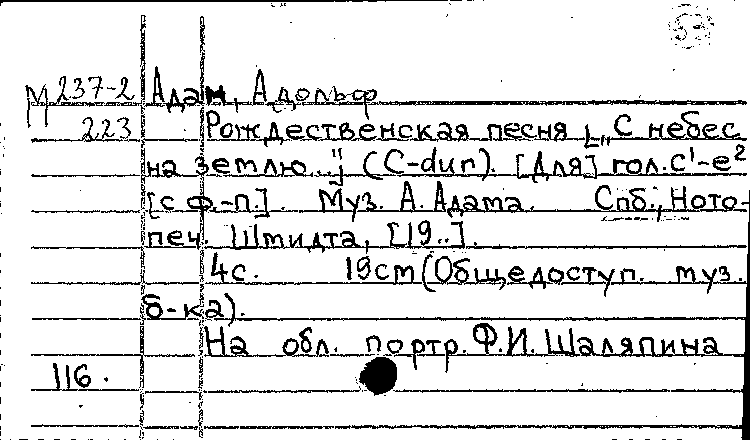 М 237-2 Адам, Адольф
223 Рождественская песня [„С небес
на землю..."] (C-dur). [Для] гол. c¹-e²
[с ф.-п.]. Муз. А. Адама. Спб., Ното-
печ. Шмидта, [19..].
4с. 19см (Общедоступ. муз.
б-ка).
На обл. портр. Ф.И. Шаляпина
116.